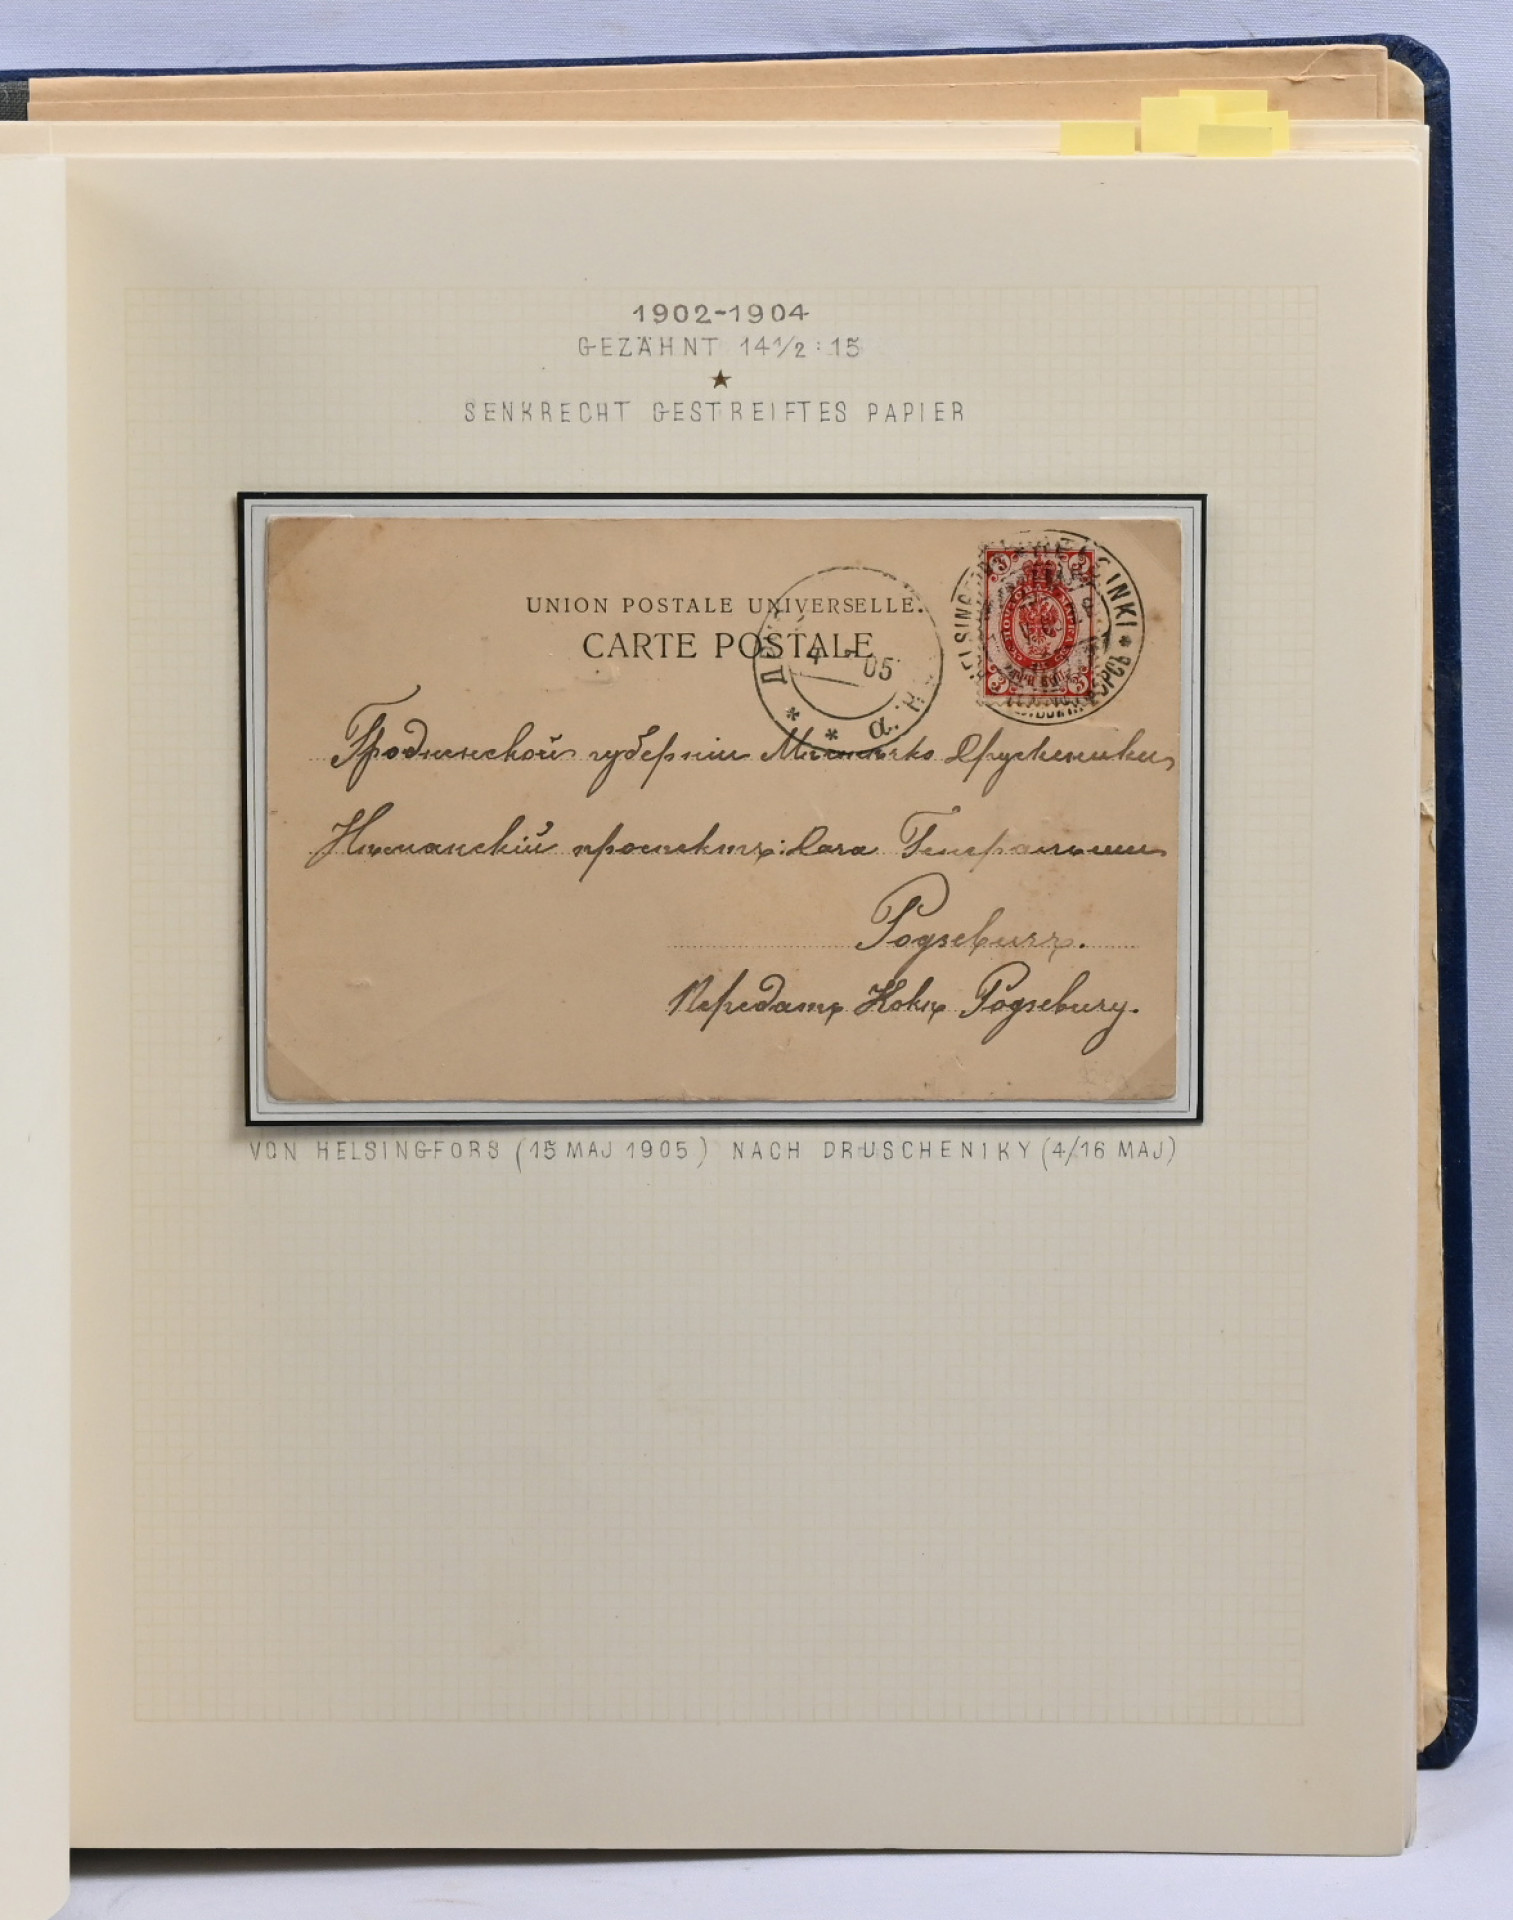 1902-1904
GEZÄHNT 14 1/2 : 15
★
SENKRECHT GESTREIFTES PAPIER
UNION POSTALE UNIVERSELLE.
CARTE POSTALE
4 05
а. Н
INKI *
3 3
3 3
Гродненской губернiи Мѣстечко Друскеники
Нѣманскiй проспектъ: Дача Генеральши
Родзевичъ.
Передать Кокѣ Родзевичу.
VON HELSINGFORS (15 MAJ 1905) NACH DRUSCHENIKY (4/16 MAJ)